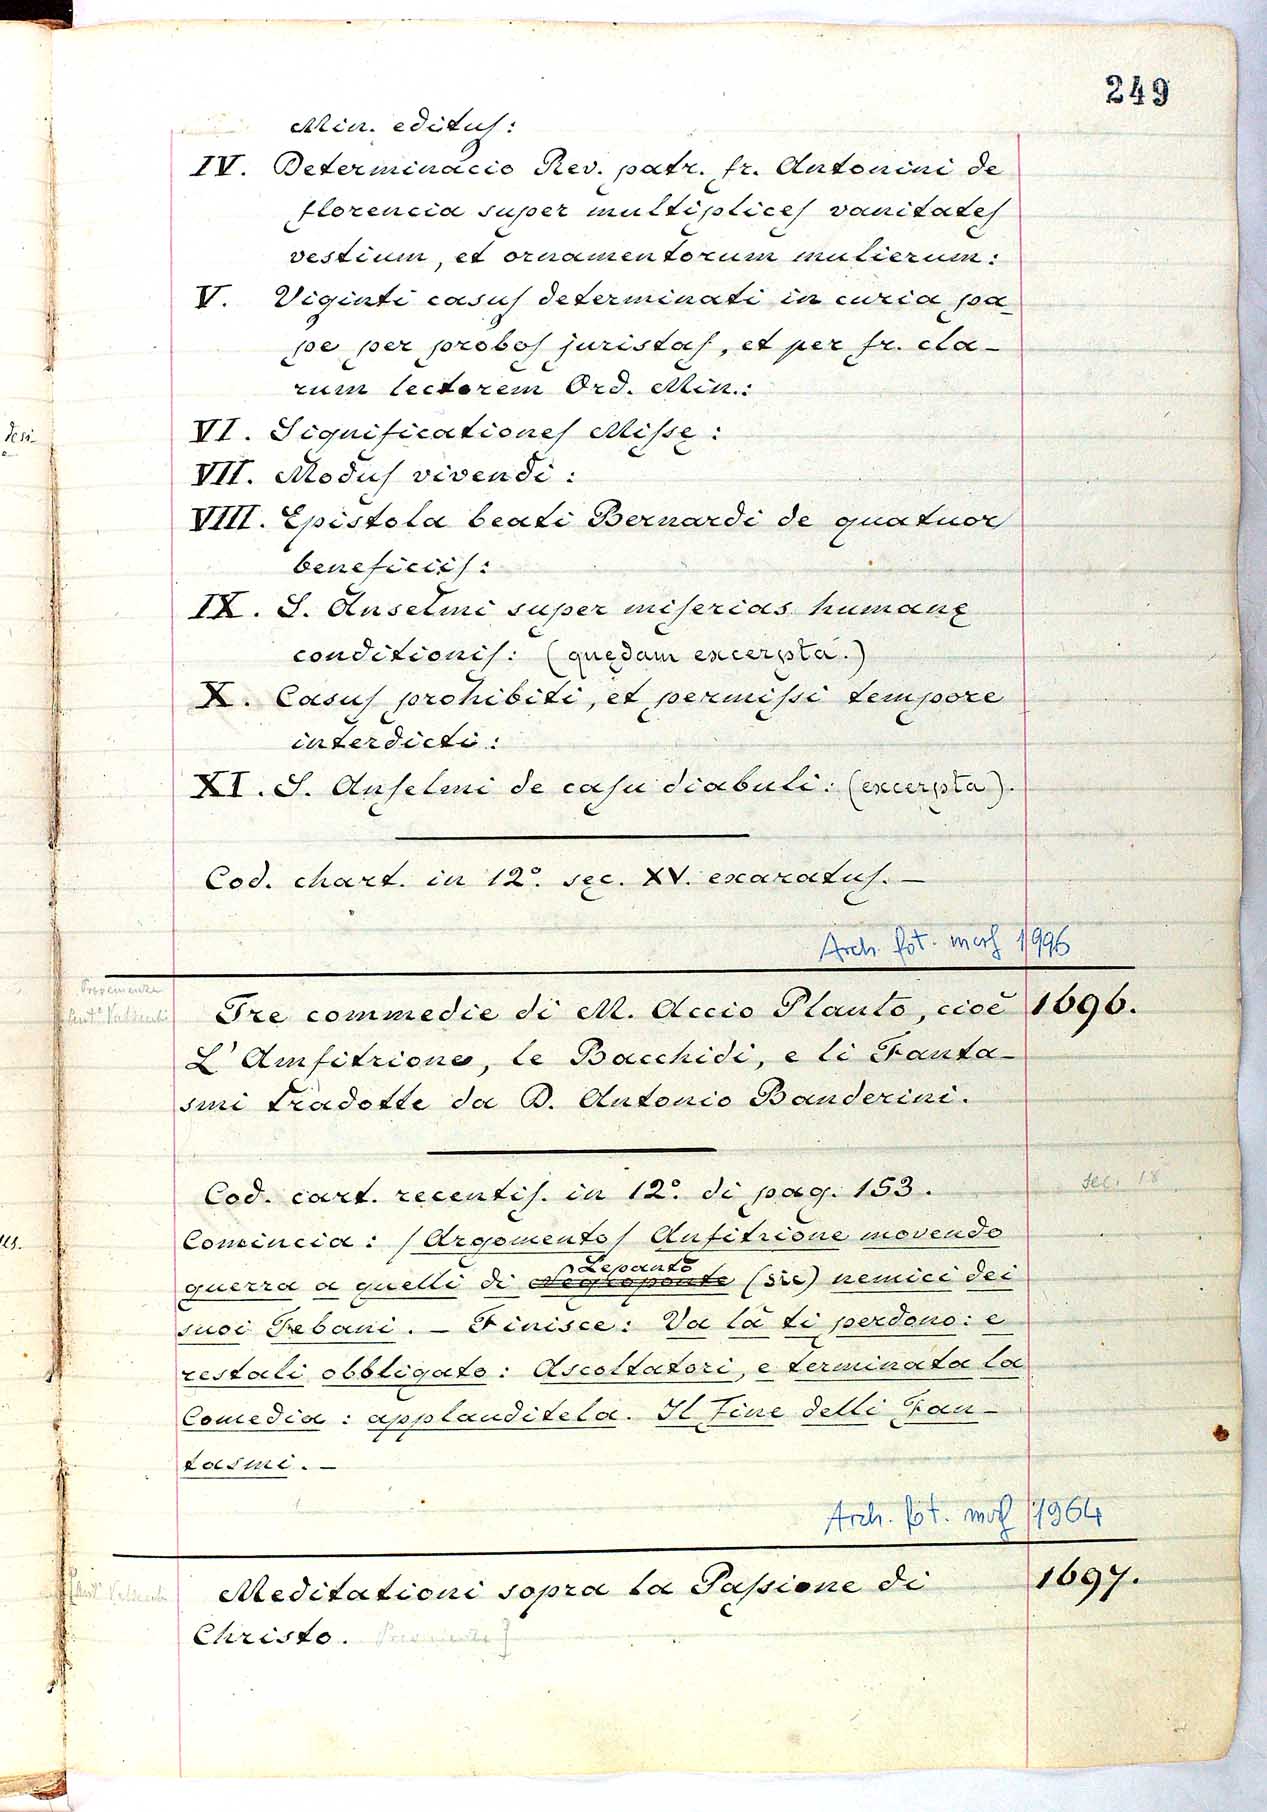 249
Min. editus:
IV. Determinacio Rev. patr. fr. Antonini de
florencia super multiplices vanitates
vestium, et ornamentorum mulierum:
V. Viginti casus determinati in curia pa_
pe per probos juristas, et per fr. cla_
rum lectorem Ord. Min.:
VI. Significationes Missę:
VII. Modus vivendi:
VIII. Epistola beati Bernardi de quatuor
beneficiis:
IX. S. Anselmi super miserias humanę
conditionis: (quędam excerpta.)
X. Casus prohibiti, et permissi tempore
interdicti:
XI. S. Anselmi de casu diabuli: (excerpta).
Cod. chart. in 12.º sec. XV. exaratus. _
Arch. fot. mss 1996
Provenienza
Ant.º Valsecchi
Tre commedie di M. Accio Plauto, cioè 1696.
L'Amfitrione, le Bacchidi, e li Fanta_
smi tradotte da D. Antonio Banderini.
Cod. cart. recentis. in 12.º di pag. 153. sec. 18
Comincia: /Argomento/ Anfitrione movendo
Lepanto
guerra a quelli di Negroponte (sic) nemici dei
suoi Tebani. _ Finisce: Va là ti perdono: e
restali obbligato: Ascoltatori, e terminata la
Comedia: applauditela. Il Fine delli Fan_
tasmi. _
Arch. fot. mss 1964
Meditationi sopra la Passione di 1697.
Christo.